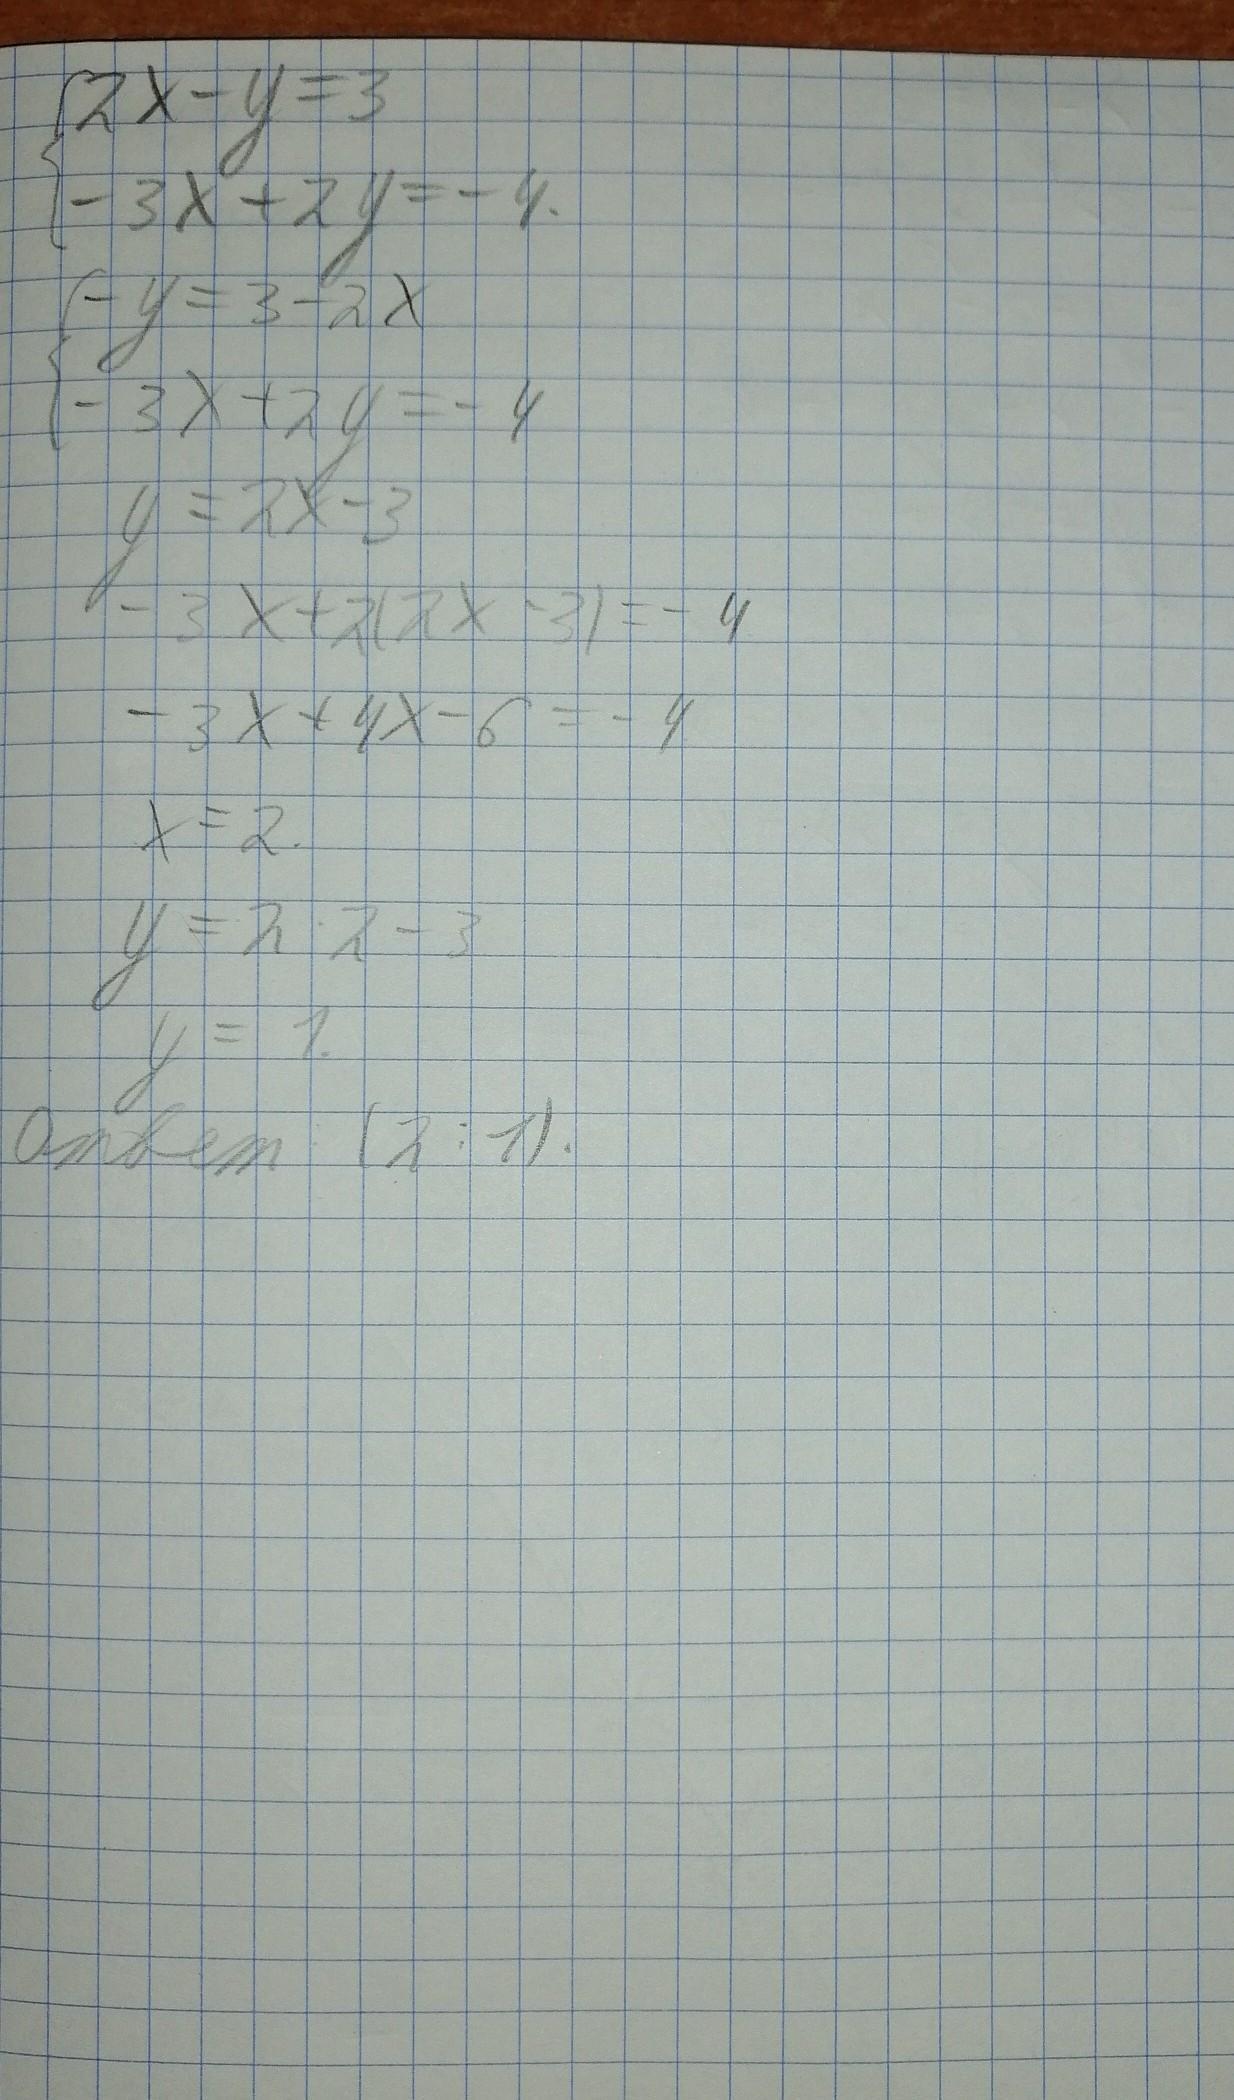 2x-y=3
-3x+2y=-4.
-y=3-2x
-3x+2y=-4
y=2x-3
-3x+2(2x-3)=-4
-3x+4x-6=-4
x=2.
y=2·2-3
y=1.
Ответ: (2:1).